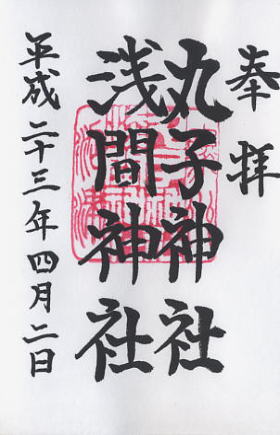 奉拝
丸子神社
浅間神社
平成二十三年四月二日